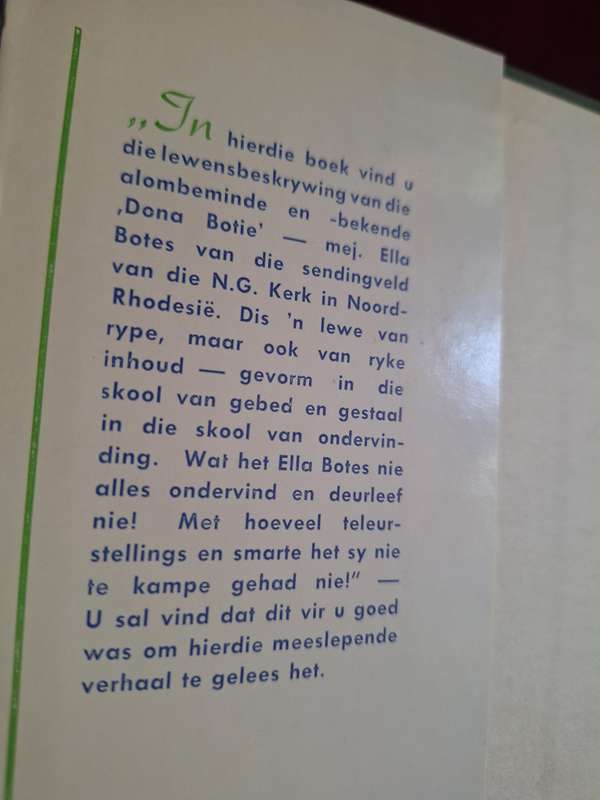 „In hierdie boek vind u
die lewensbeskrywing van die
alombeminde en -bekende
‚Dona Botie’ — mej. Ella
Botes van die sendingveld
van die N.G. Kerk in Noord-
Rhodesië. Dis 'n lewe van
rype, maar ook van ryke
inhoud — gevorm in die
skool van gebed en gestaal
in die skool van ondervin-
ding. Wat het Ella Botes nie
alles ondervind en deurleef
nie! Met hoeveel teleur-
stellings en smarte het sy nie
te kampe gehad nie!” —
U sal vind dat dit vir u goed
was om hierdie meeslepende
verhaal te gelees het.